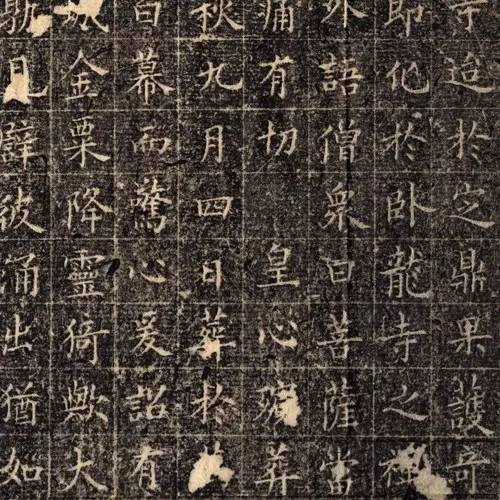 寺迨於定鼎果護奇
即化於卧龍寺之禪
外語僧衆曰菩薩當
痛有切皇心葬
秋九月四日葬於
幕而驚心爰詔有
金粟降靈猗歟大
見彼涌出猶如